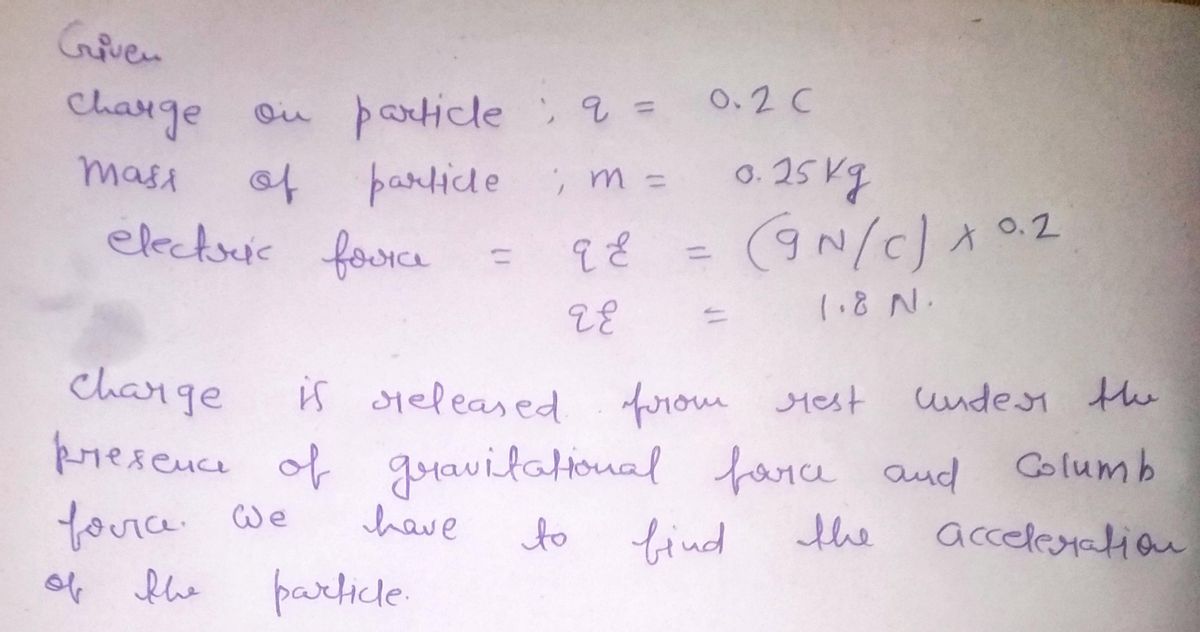 Given
charge on particle ; q = 0.2 C
mass of particle ; m = 0.25 Kg
electric force = qE = (9 N/C) x 0.2
qE = 1.8 N.
charge is released from rest under the
presence of gravitational force and Columb
force. We have to find the acceleration
of the particle.